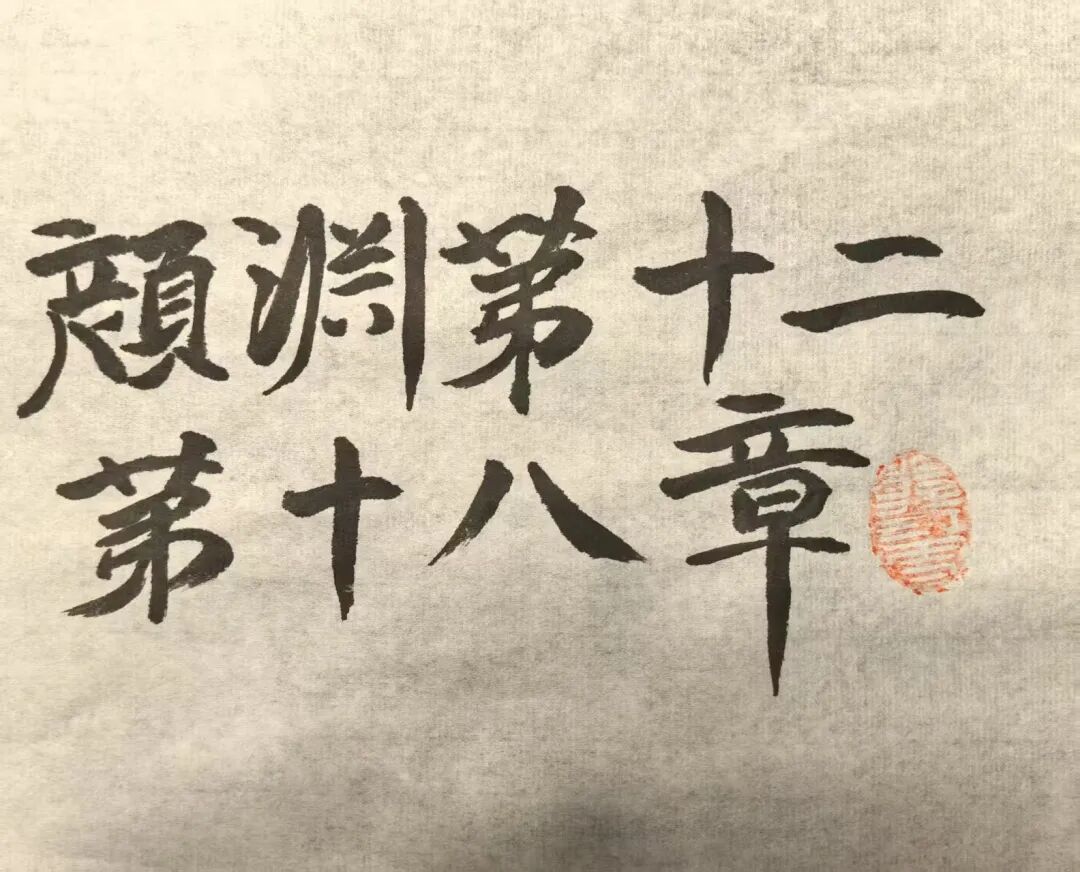 顔渊第十二
第十八章